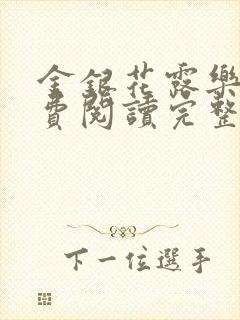 金銀花露樂
費閱讀完整
下一位選手